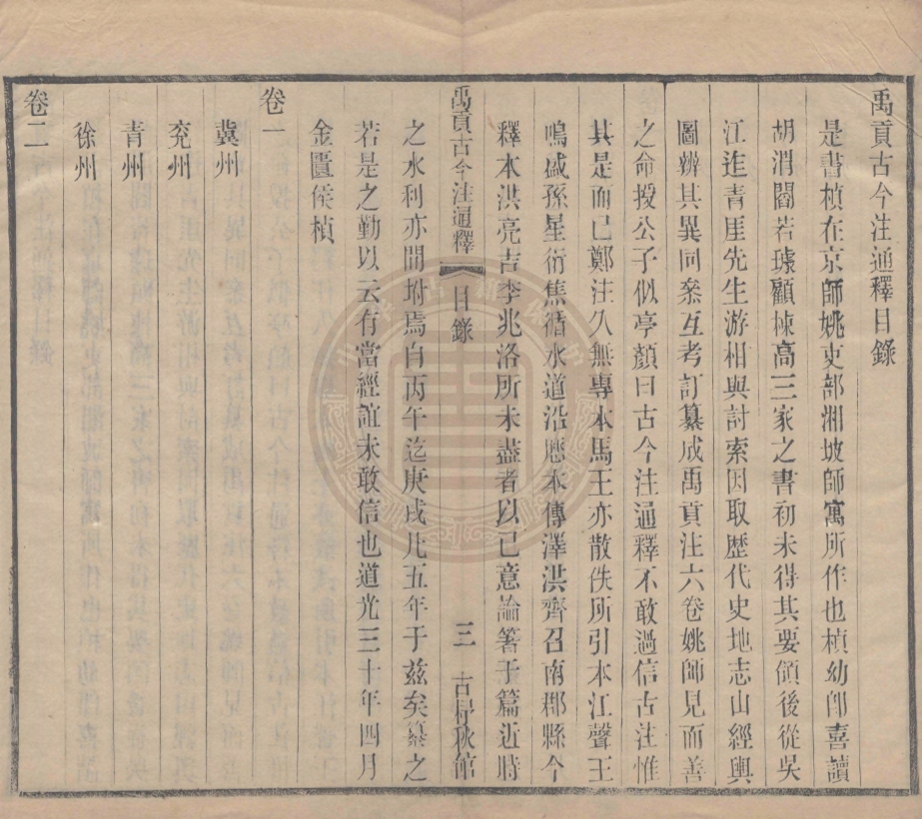 禹貢古今注通釋目錄
是書楨在京師姚吏部湘坡師寓所作也楨幼卽喜讀
胡渭閻若璩顧棟高三家之書初未得其要領後從吳
江迮青厓先生游相與討索因取歷代史地志山經輿
圖辨其異同叅互考訂纂成禹貢注六卷姚師見而善
之命授公子似亭顏曰古今注通釋不敢過信古注惟
其是而已鄭注久無專本馬王亦散佚所引本江聲王
鳴盛孫星衍焦循水道沿厯本傅澤洪齊召南郡縣今
釋本洪亮吉李兆洛所未盡者以已意論箸于篇近時
禹貢古今注通釋 目錄 三 古杼秋館
之水利亦閒坿焉自丙午迄庚戌凡五年于兹矣纂之
若是之勤以云有當經誼未敢信也道光三十年四月
金匱侯楨
卷一
冀州
兖州
青州
徐州
卷二